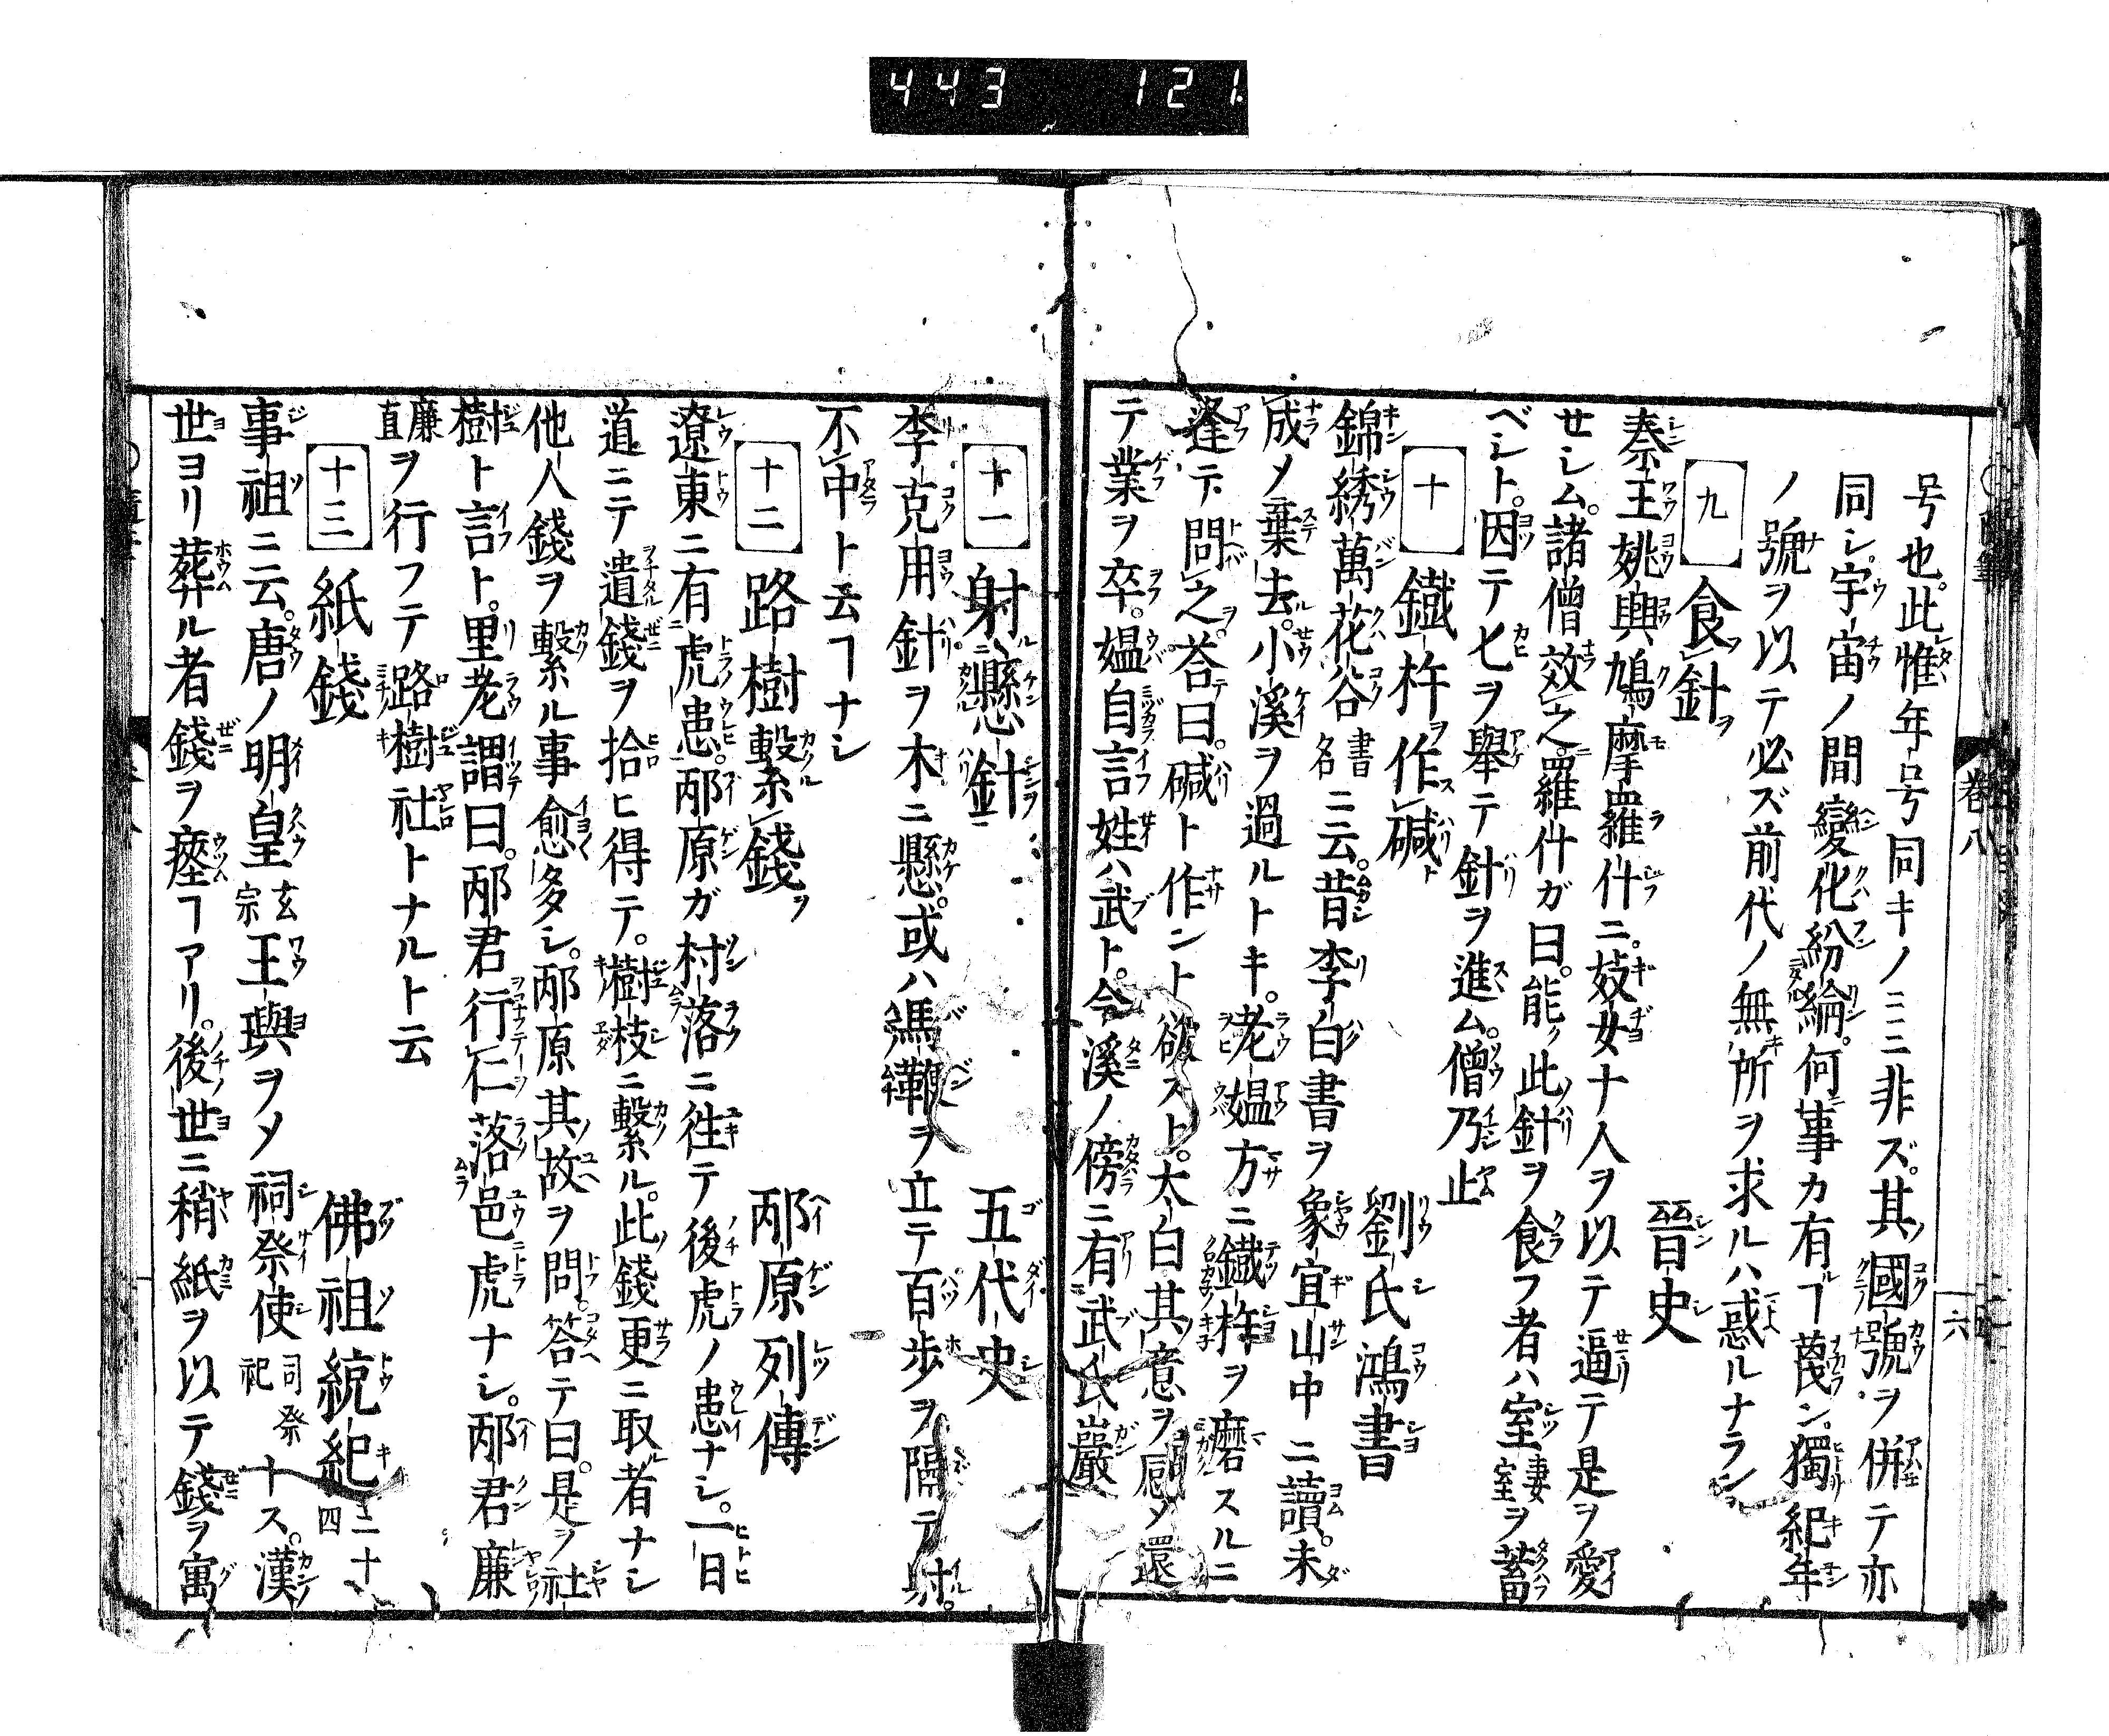 443 121
号也。此惟年号同キノミニ非ズ。其國號ヲ併テ亦
同シ。宇宙ノ間變化紛綸。何事カ有ルヿ蔑ン。獨紀年
ノ號ヲ以テ必ズ前代ノ無所ヲ求ルハ惑ルナラン
九 食針 晉史
秦王姚興鳩摩羅什ニ。妓女十人ヲ以テ逼テ是ヲ愛
せシム。諸僧效之。羅什ガ曰。能此針ヲ食フ者ハ室妻室ヲ蓄
ベシト。因テ匕ヲ舉テ針ヲ進ム。僧乃止
十 鐵杵作鍼 劉氏鴻書
錦綉萬花谷書名ニ云。昔李白書ヲ象宜山中ニ讀。未
成メ棄去。小溪ヲ過ルトキ。老媼方ニ鐵杵ヲ磨スルニ
逢テ問之。荅曰。鍼ト作ント欲スト。太白其意ヲ感メ還
テ業ヲ卒。媼自言姓ハ武ト。今溪ノ傍ニ有武氏巖
巻八
六
十一 射懸針 五代史
李克用針ヲ木ニ懸。或ハ馬鞭ヲ立テ百歩ヲ隔テ射。
不中ト云ヿナシ
十二 路樹繫錢 邴原列傳
遼東ニ有虎患。邴原ガ村落ニ往テ後虎ノ患ナシ。一日
道ニテ遺錢ヲ拾ヒ得テ。樹枝ニ繫ル。此錢更ニ取者ナシ
他人錢ヲ繫ル事愈多シ。邴原其故ヲ問。答テ曰。是ヲ社
樹ト言ト。里老謂曰。邴君行仁落邑虎ナシ。邴君廉
廉直ヲ行フテ路樹社トナルト云
十三 紙錢 佛祖統紀三十四
事祖ニ云。唐ノ明皇玄宗王璵ヲメ祠祭使司祭祀十ス。漢
世ヨリ葬ル者錢ヲ瘞ヿアリ。後世ニ稍紙ヲ以テ錢ヲ寓